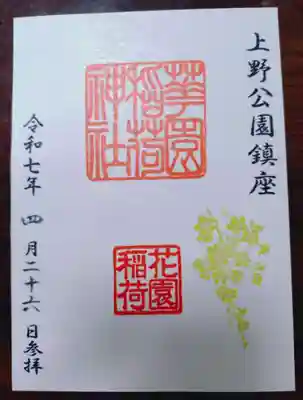 上野公園鎮座
華園
稲荷
神社
花園
稲荷
令和七年 四月二十六日参拝